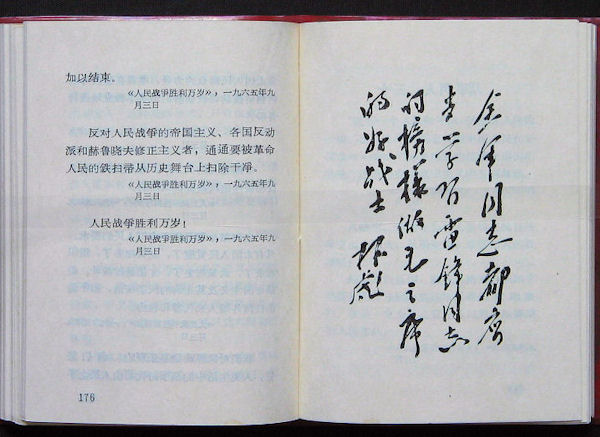 加以结束。
《人民战爭胜利万岁》，一九六五年九
月三日
反对人民战爭的帝国主义、各国反动
派和赫鲁晓夫修正主义者，通通要被革命
人民的鉄扫帚从历史舞台上扫除干淨。
《人民战爭胜利万岁》，一九六五年九
月三日
人民战爭胜利万岁！
《人民战爭胜利万岁》，一九六五年九
月三日
176
全军同志都应
当学习雷锋同志
的榜樣做毛主席
的好战士
林彪